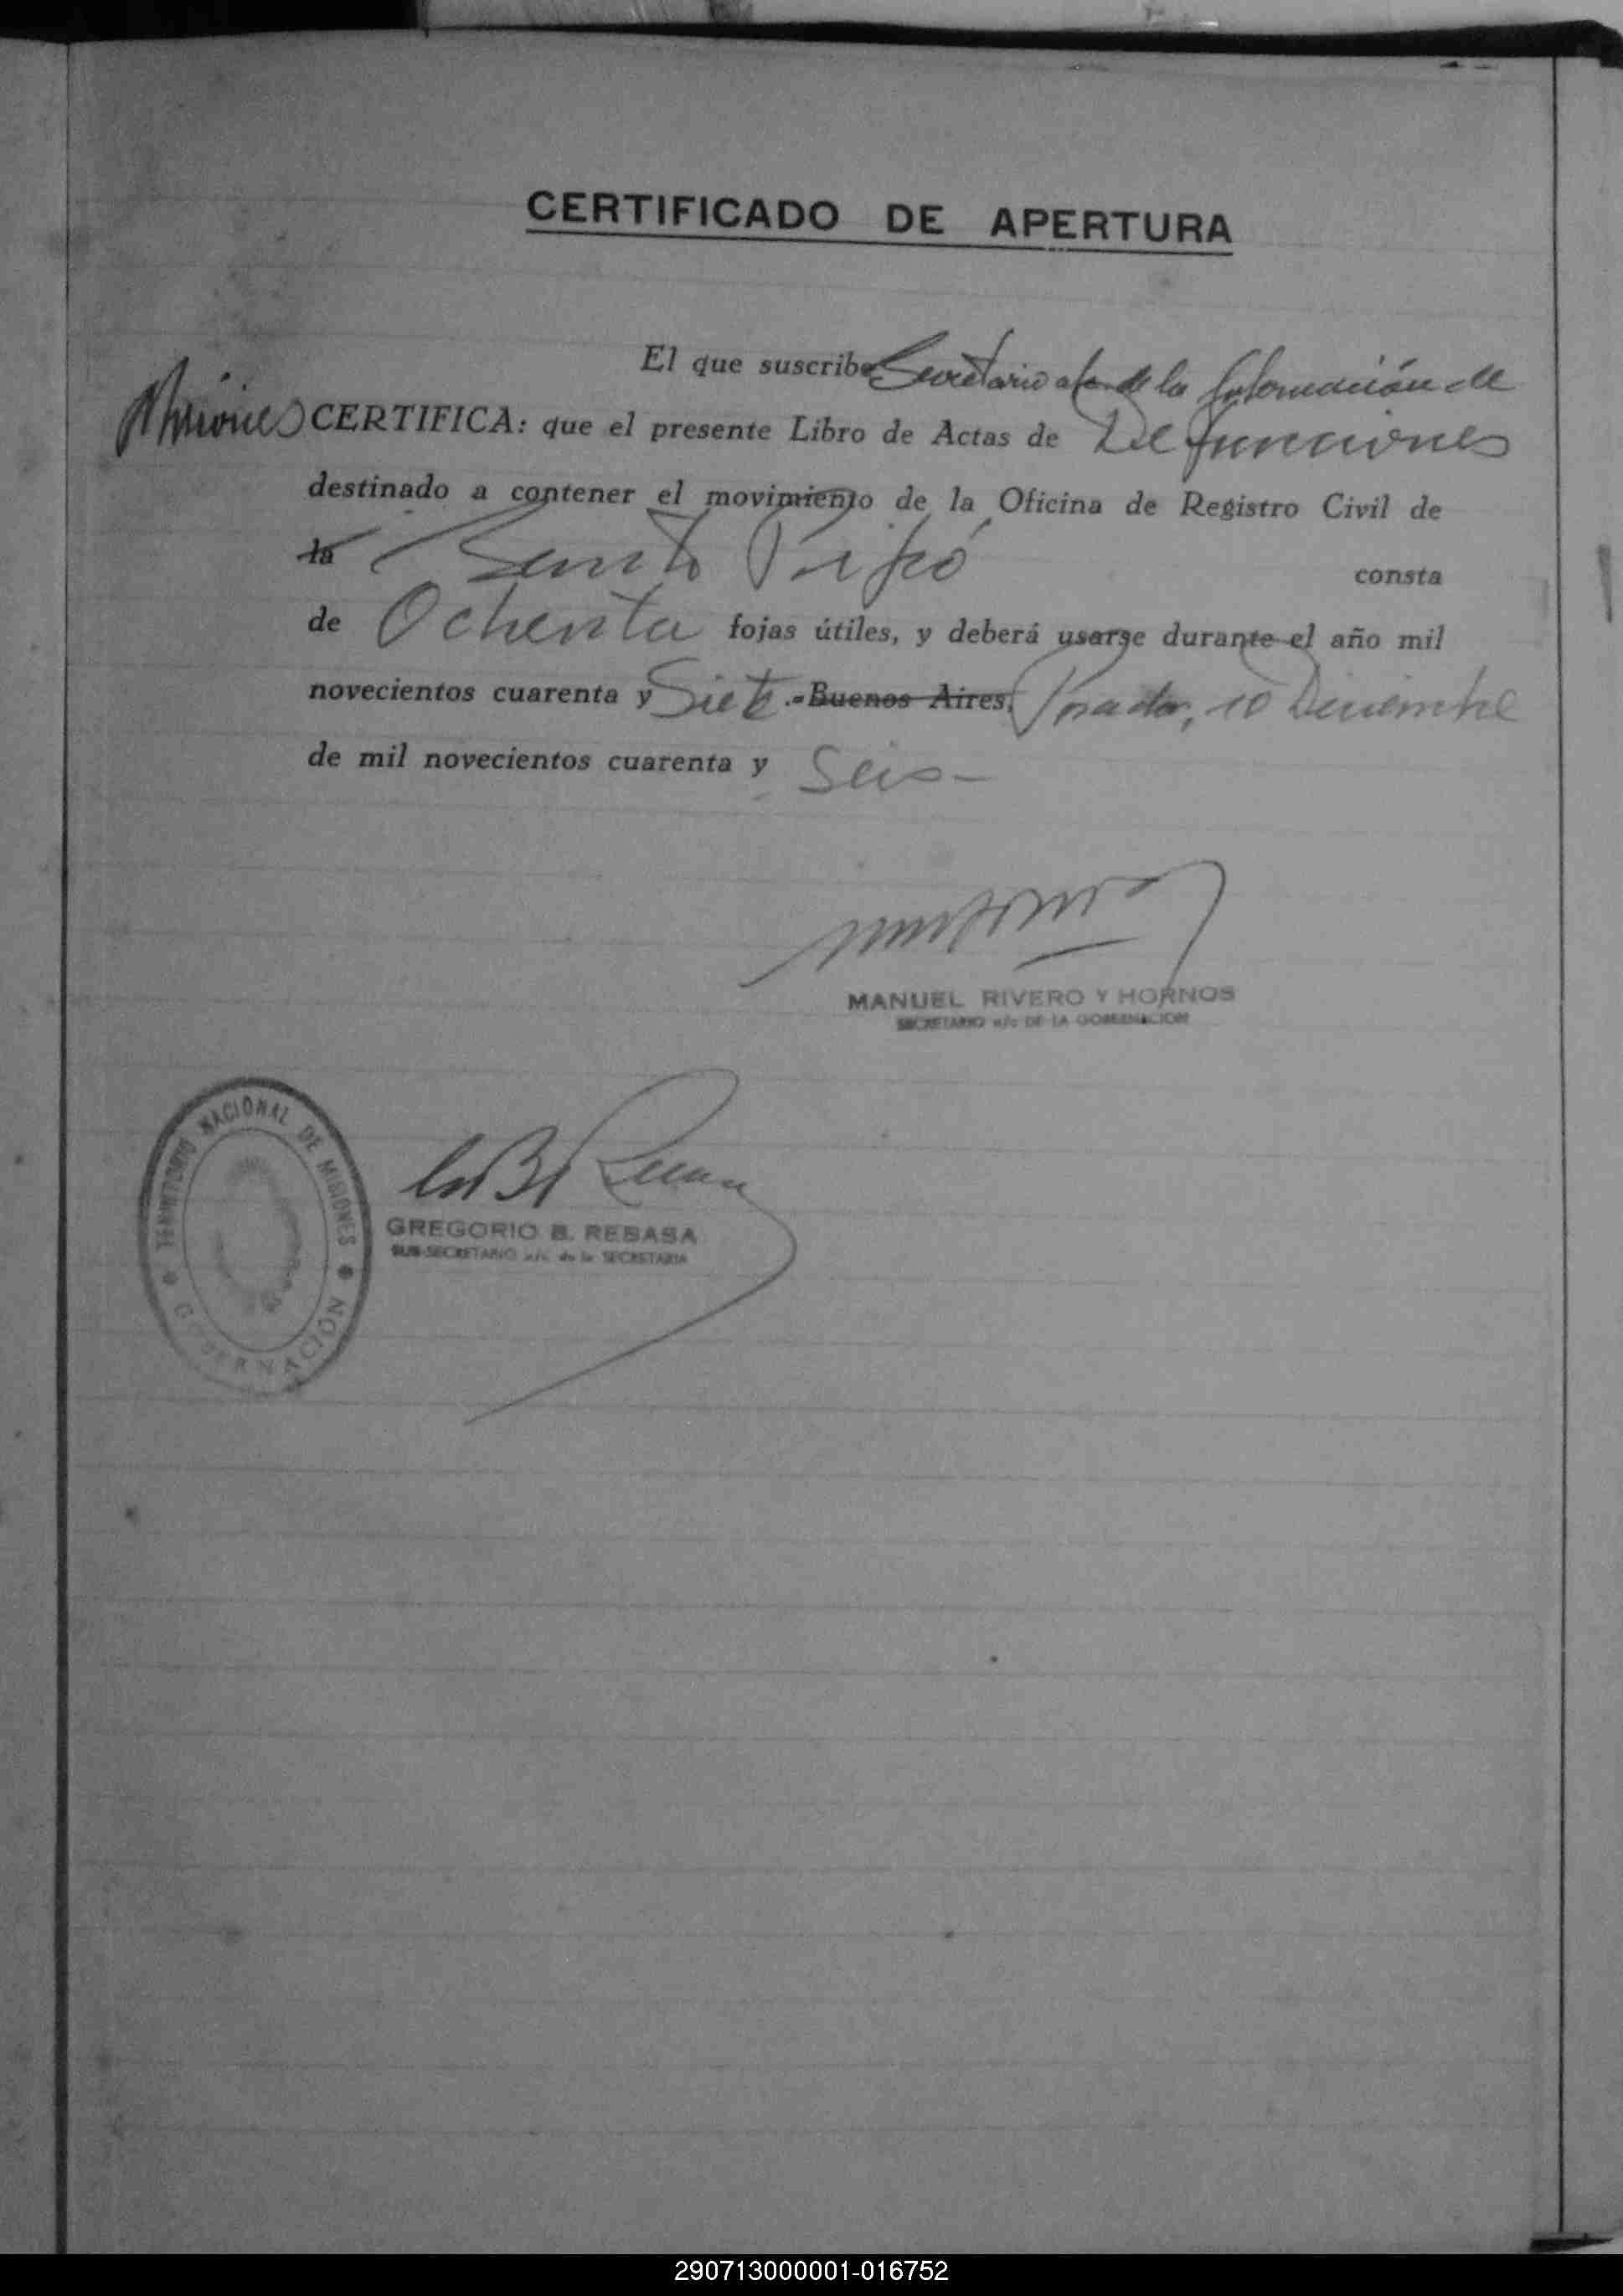 CERTIFICADO DE APERTURA
El que suscribe Secretario a/c de la Gobernación de
Misiones CERTIFICA: que el presente Libro de Actas de Defunciones
destinado a contener el movimiento de la Oficina de Registro Civil de
la Santo Pipó consta
de Ochenta fojas útiles, y deberá usarse durante el año mil
novecientos cuarenta y Siete.- Buenos Aires, Posadas, 10 Diciembre
de mil novecientos cuarenta y Seis-
MANUEL RIVERO Y HORNOS
SECRETARIO a/c DE LA GOBERNACION
TERRITORIO NACIONAL DE MISIONES
GOBERNACION
GREGORIO B. REBASA
SUB-SECRETARIO a/c de la SECRETARIA
290713000001-016752